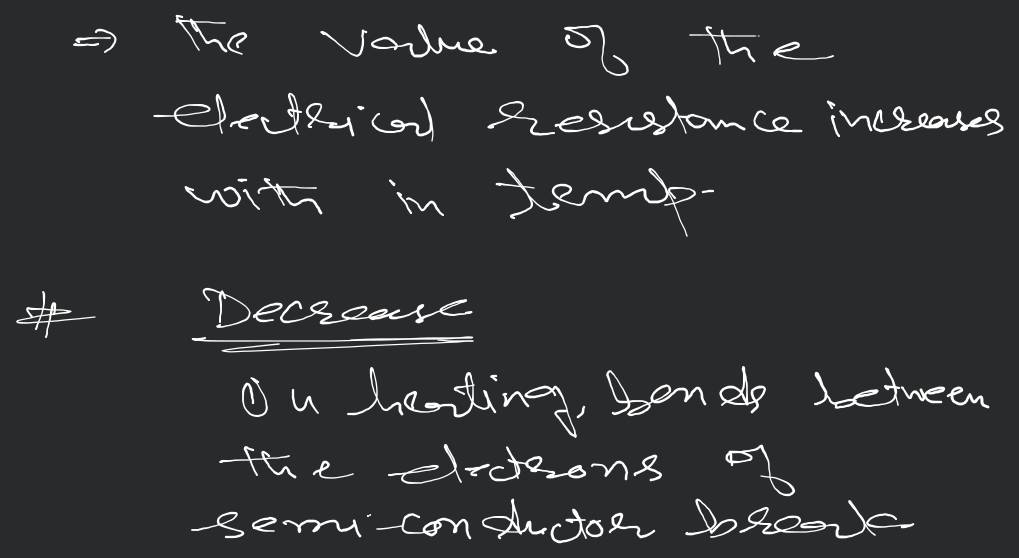 ⇒ The value of the
electrical resistance increases
with in temp.
# Decrease
On heating, bonds between
the electrons of
semi-conductor break